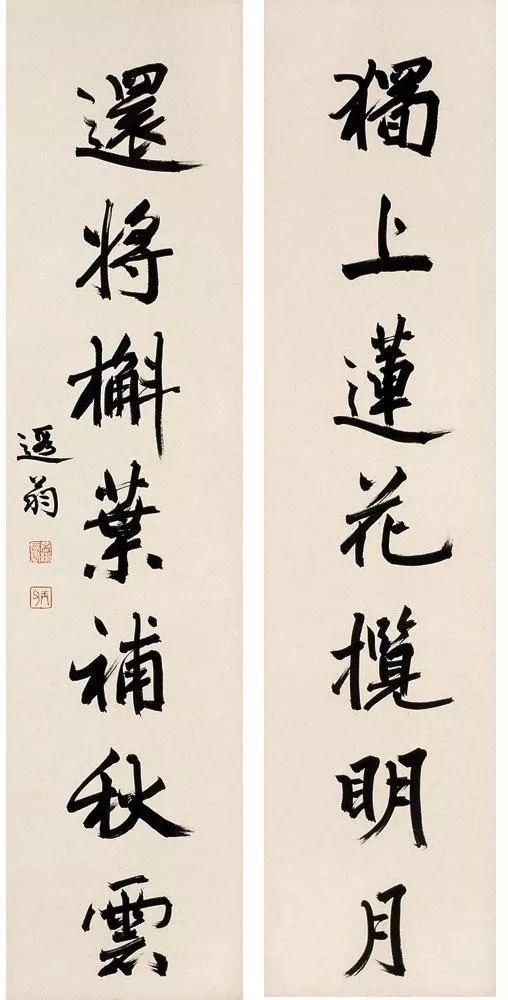 獨上蓮花攬明月
還將槲葉補秋雲
遐翁